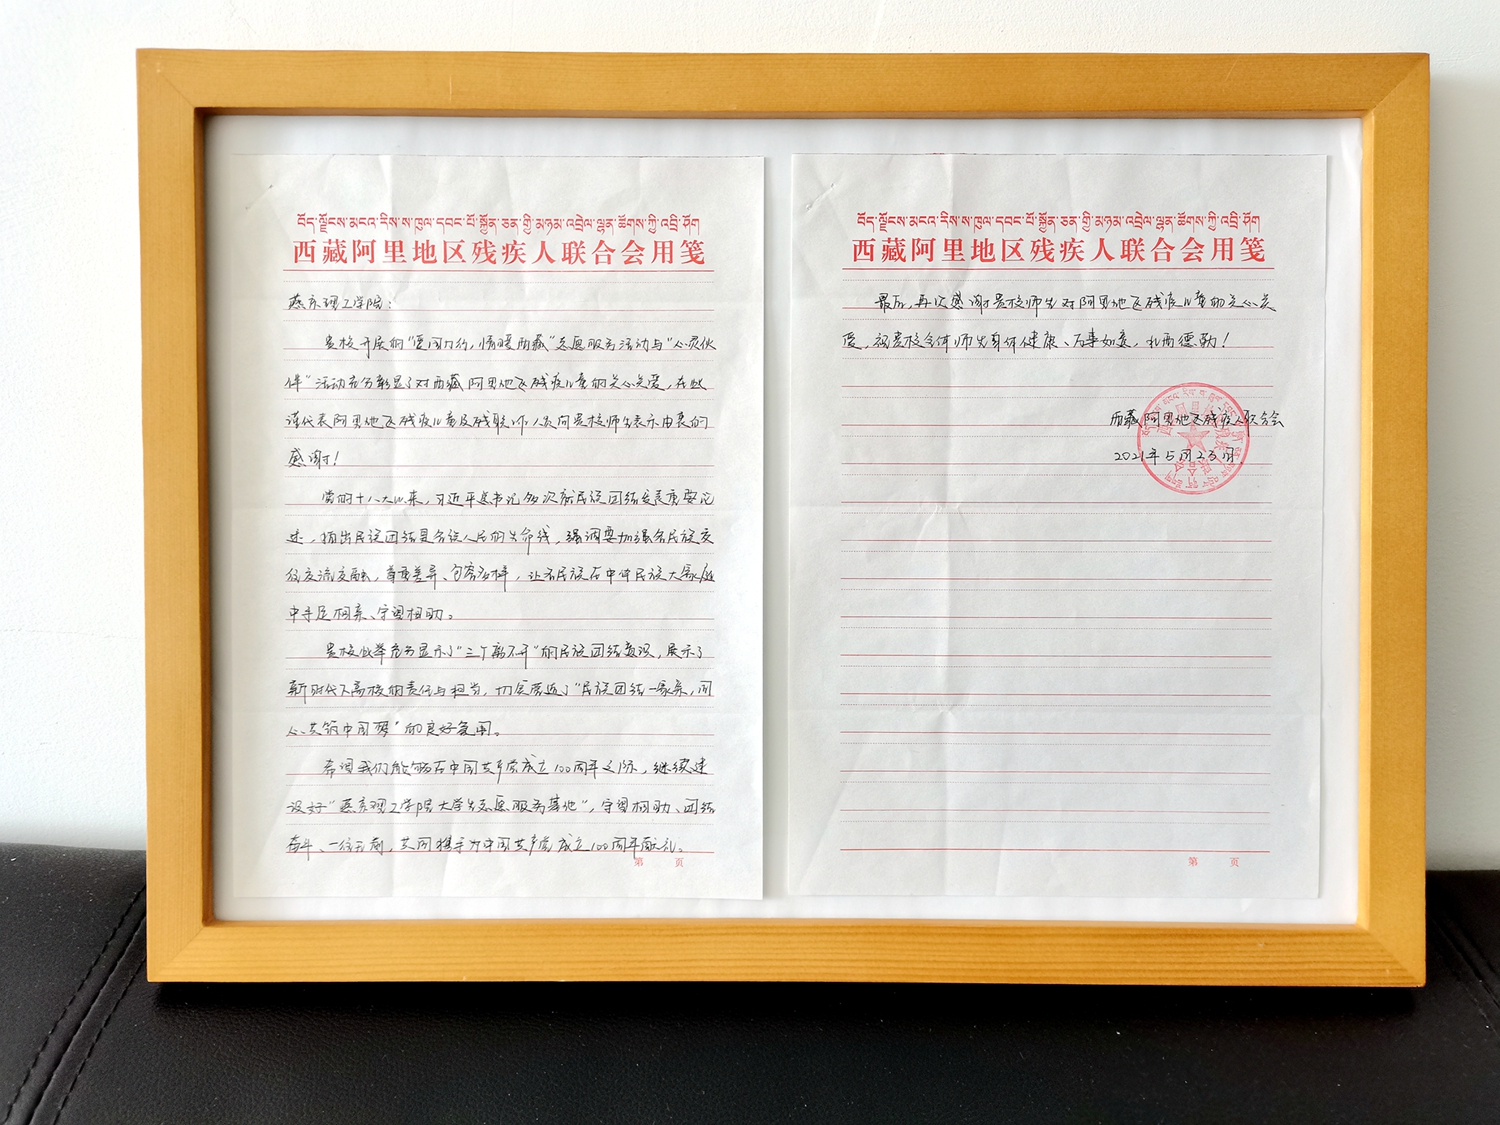 བོད་ལྗོངས་མངའ་རིས་ས་ཁུལ་དབང་པོ་སྐྱོན་ཅན་གྱི་མཉམ་འབྲེལ་ལྷན་ཚོགས་ཀྱི་འབྲི་ཤོག
西藏阿里地区残疾人联合会用笺
燕京理工学院：
贵校开展的“爱因力行，情暖西藏”志愿服务活动与“心灵伙
伴”活动充分彰显了对西藏阿里地区残疾儿童的关心关爱，在此
谨代表阿里地区残疾儿童及残联工作人员向贵校师生表示由衷的
感谢！
党的十八大以来，习近平总书记多次就民族团结发表重要论
述，指出民族团结是各族人民的生命线，强调要加强各民族交
往交流交融，尊重差异、包容多样，让各民族在中华民族大家庭
中手足相亲、守望相助。
贵校此举充分显示了“三个离不开”的民族团结意识，展示了
新时代下高校的责任与担当，切实营造了“民族团结一家亲，同
心共筑中国梦”的良好氛围。
希望我们能够在中国共产党成立100周年之际，继续建
设好“燕京理工学院大学生志愿服务基地”，守望相助、团结
奋斗、一往无前，共同携手为中国共产党成立100周年献礼。
第 页
བོད་ལྗོངས་མངའ་རིས་ས་ཁུལ་དབང་པོ་སྐྱོན་ཅན་གྱི་མཉམ་འབྲེལ་ལྷན་ཚོགས་ཀྱི་འབྲི་ཤོག
西藏阿里地区残疾人联合会用笺
最后，再次感谢贵校师生对阿里地区残疾儿童的关心关
爱，祝贵校全体师生身体健康、万事如意，扎西德勒！
西藏阿里地区残疾人联合会
2021年5月23日
第 页